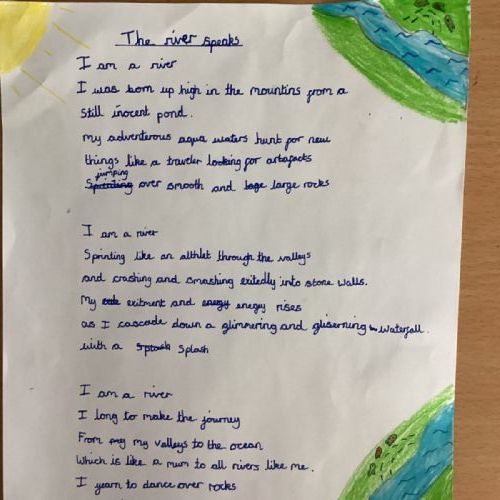 The river speaks
I am a river
I was born up high in the mountins from a
still inocent pond.
my adventerous aqua waters hunt for new
things like a traveler looking for artafacts
jumping
Sprinting over smooth and loge large rocks
I am a river
Sprinting like an althlet through the valleys
and crashing and smashing exitedly into stone walls.
My exitment and energy enegry rises
as I cascade down a glimmering and gliserning waterfall.
with a Splash
I am a river
I long to make the journey
From my valleys to the ocean
Which is like a mum to all rivers like me.
I yearn to dance over rocks